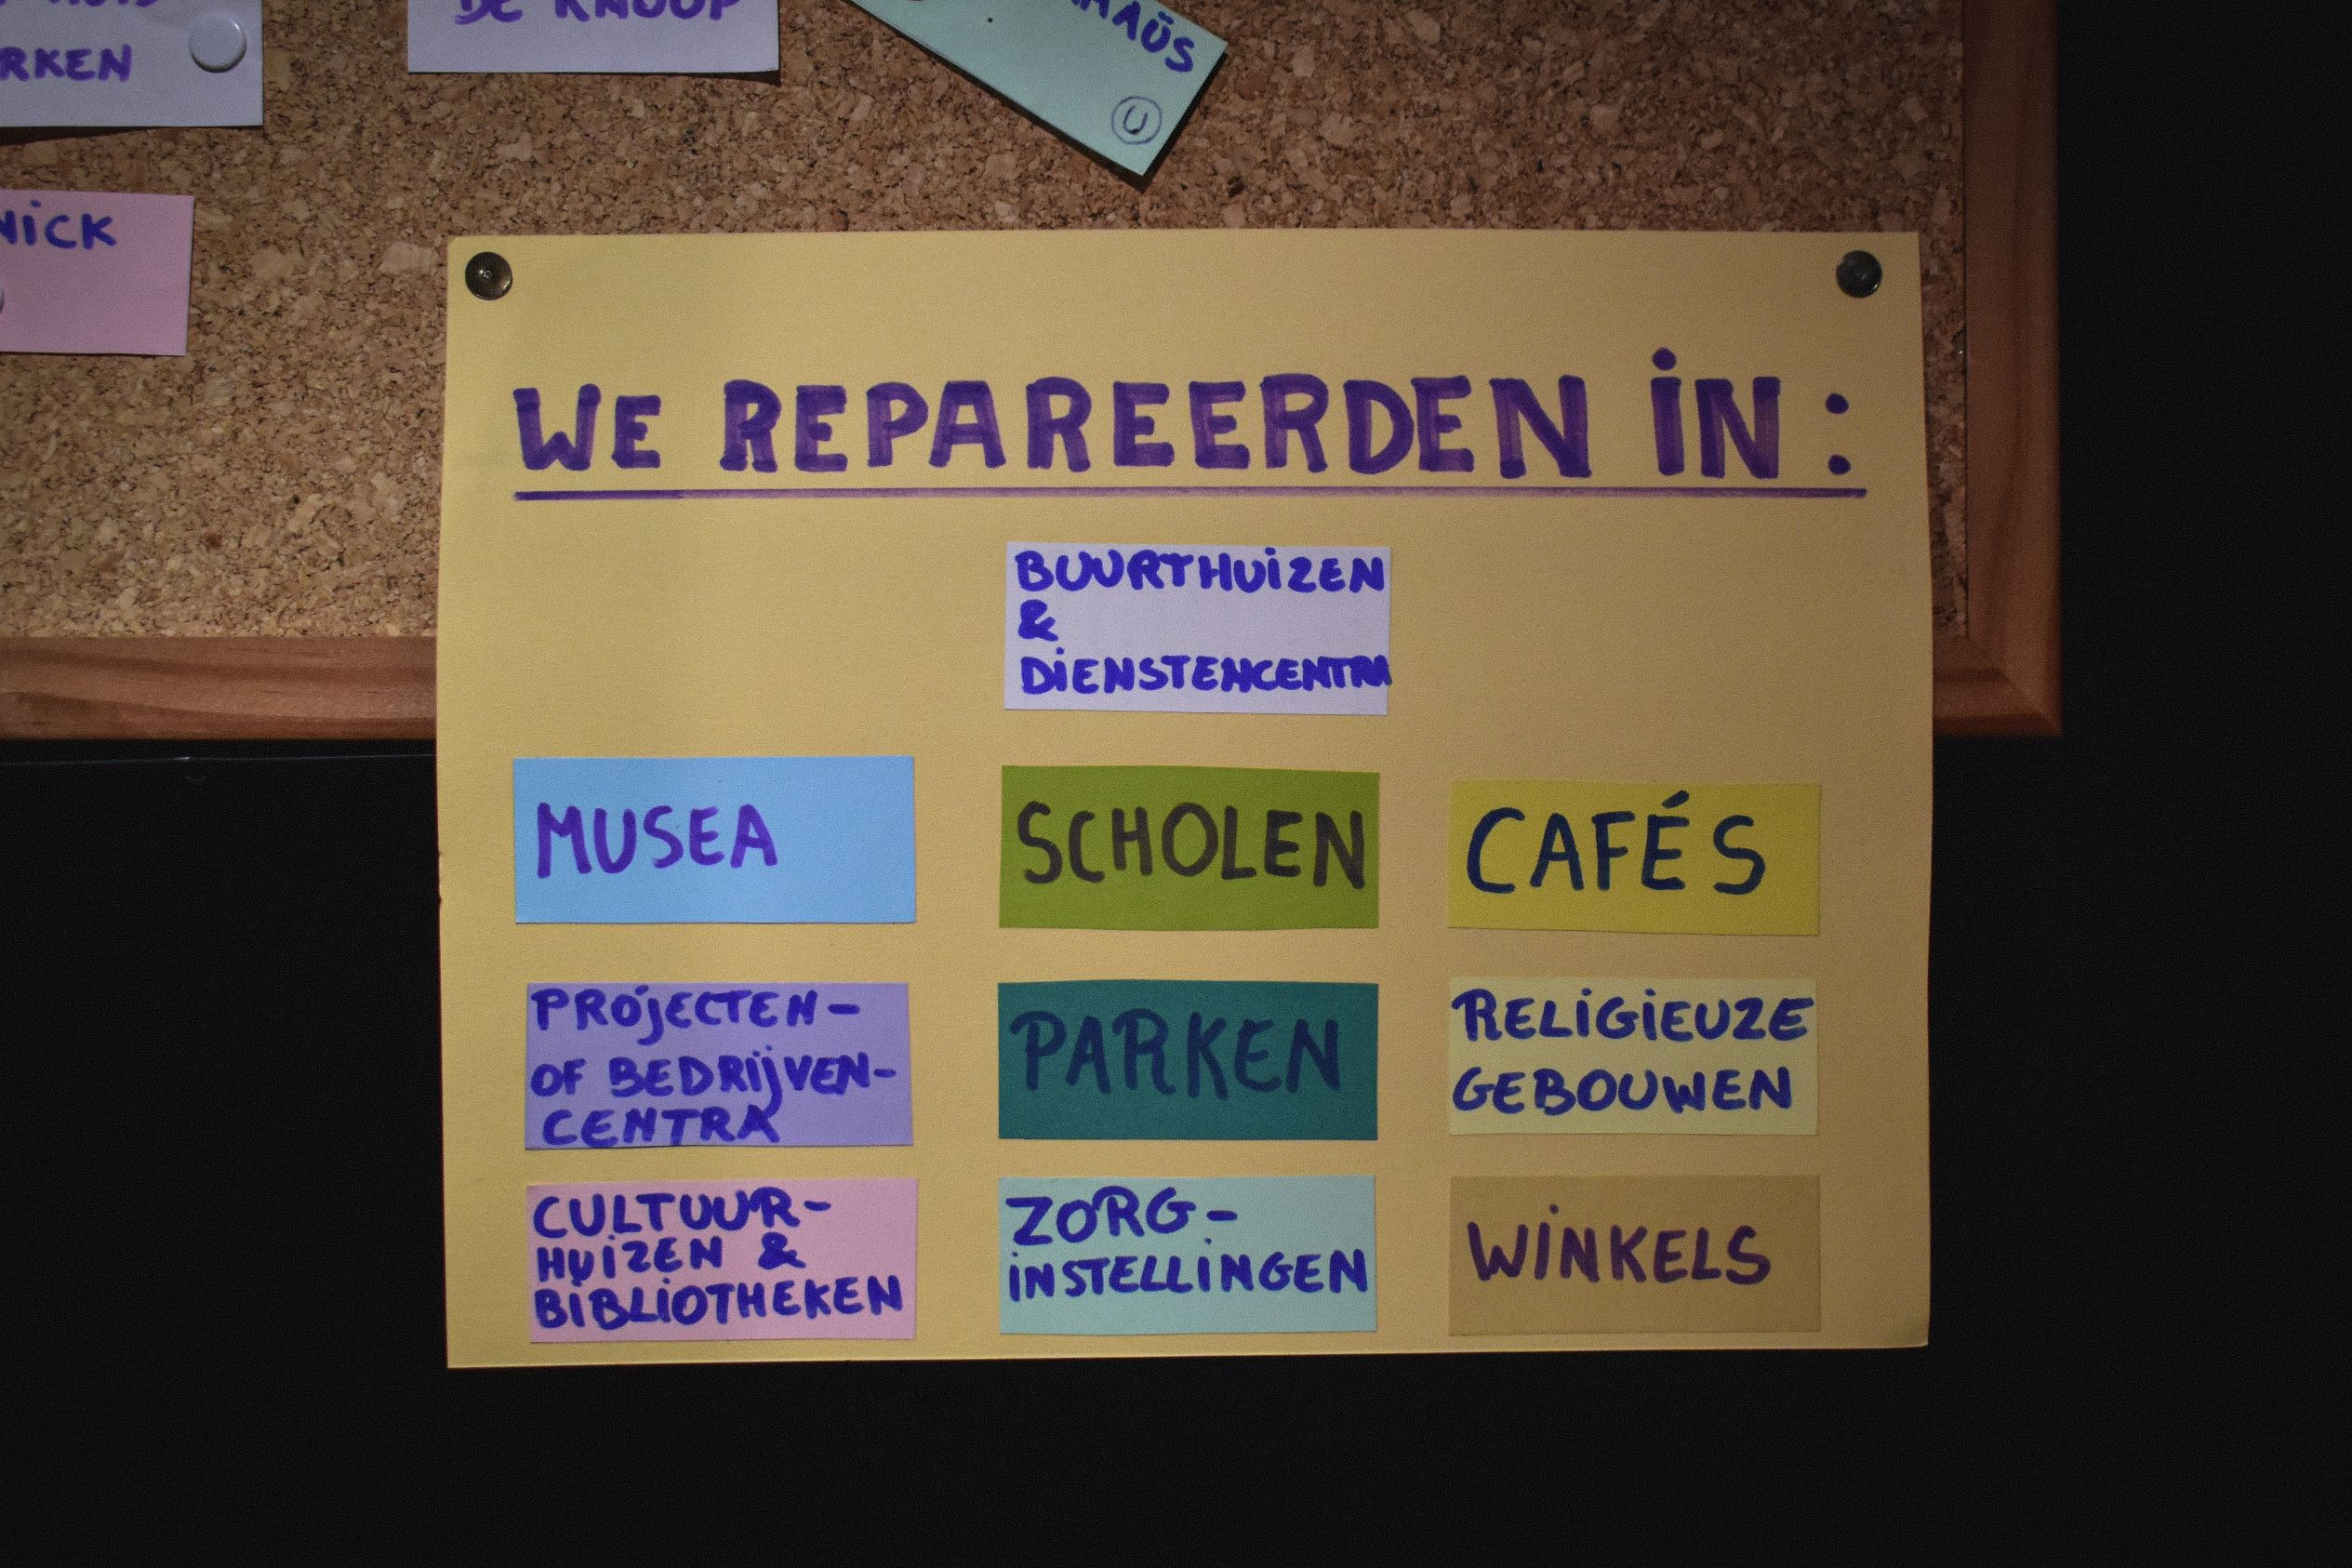 DE KNOOP
RKEN
NICK
U
WE REPAREERDEN IN :
BUURTHUIZEN
&
DIENSTENCENTRA
MUSEA
SCHOLEN
CAFÉS
PROJECTEN-
OF BEDRIJVEN-
CENTRA
PARKEN
RELIGIEUZE
GEBOUWEN
CULTUUR-
HUIZEN &
BIBLIOTHEKEN
ZORG-
INSTELLINGEN
WINKELS